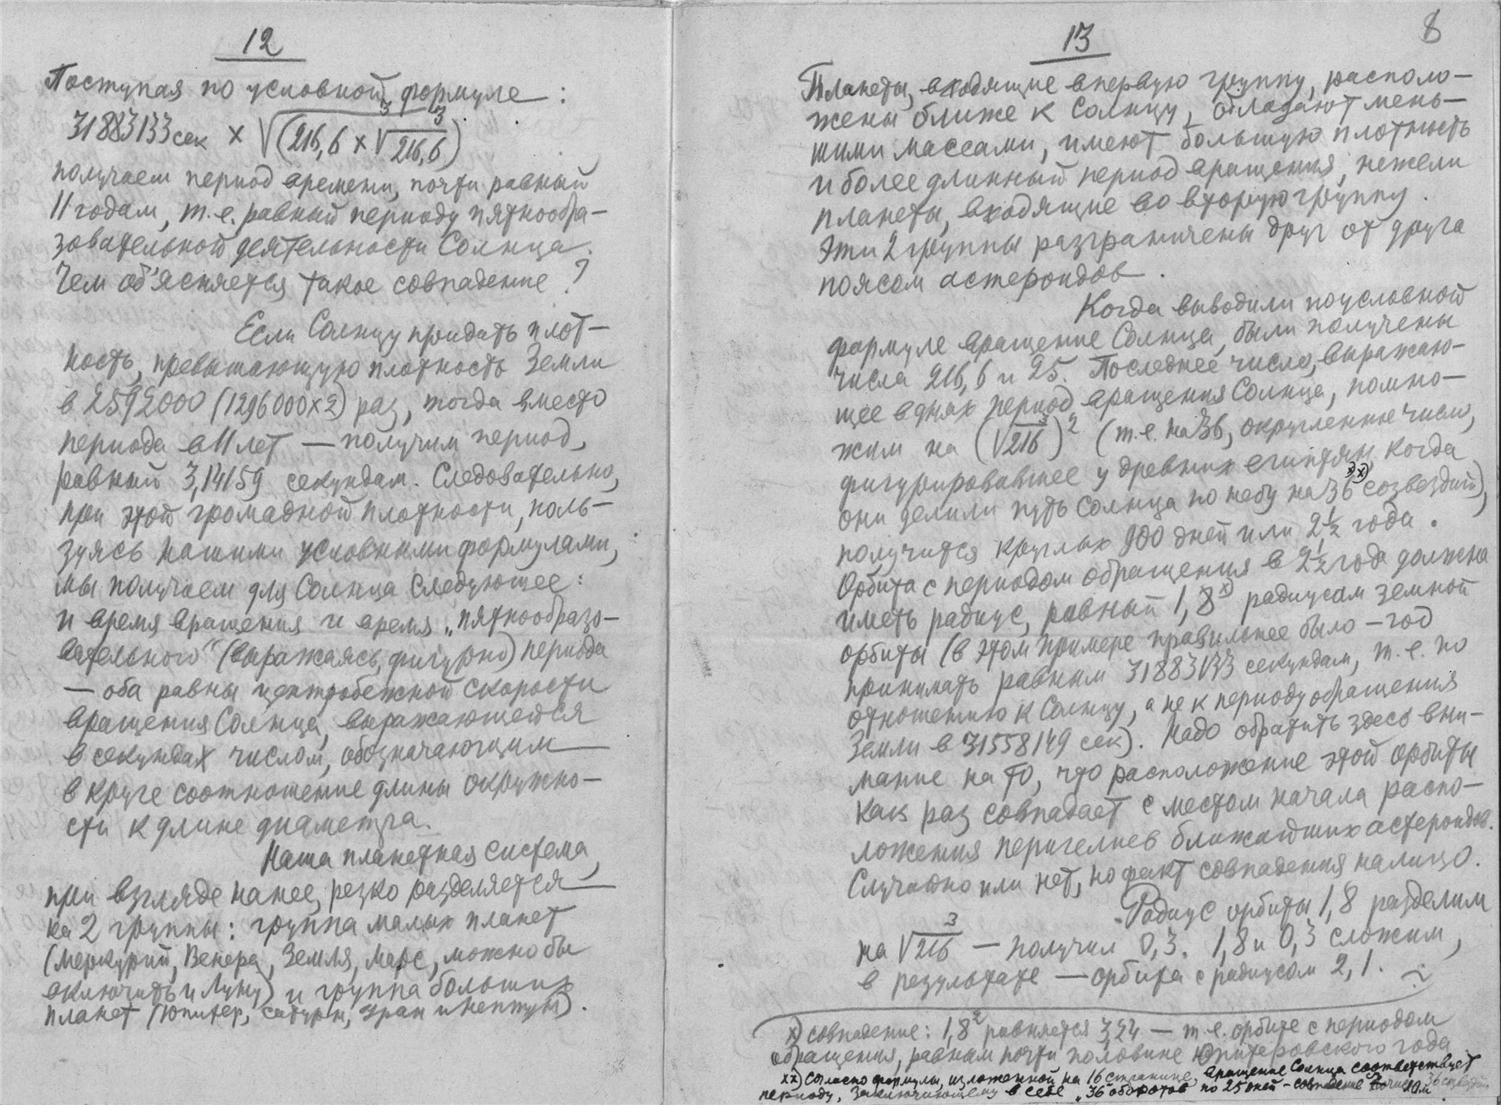 12
Поступая по условной формуле:
31883133 сек × ∛(216,6 × ∛216,6)
получаем период времени, почти равный
11 годам, т.е. равный периоду пятнообра-
зовательной деятельности Солнца.
Чем об'ясняется такое совпадение?
Если Солнцу придать плот-
ность, превышающую плотность Земли
в 2592000 (1296000×2) раз, тогда вместо
периода в 11 лет — получим период,
равный 3,14159 секундам. Следовательно,
при этой громадной плотности, поль-
зуясь нашими условными формулами,
мы получаем для Солнца следующее:
и время вращения и время „пятнообразо-
вательного“ (выражаясь фигурно) периода
— оба равны центробежной скорости
вращения Солнца, выражающейся
в секундах числом, обозначающим
в круге соотношение длины окружно-
сти к длине диаметра.
Наша планетная система,
при взгляде на нее, резко разделяется
на 2 группы: группа малых планет
(Меркурий, Венера, Земля, Марс, можно бы
включить и Луну) и группа больших
планет (Юпитер, Сатурн, Уран и Нептун).
13
8
Планеты, входящие в первую группу, располо-
жены ближе к Солнцу, обладают мень-
шими массами, имеют большую плотность
и более длинный период вращения, нежели
планеты, входящие во вторую группу.
Эти 2 группы разграничены друг от друга
поясом астероидов.
Когда выводили по условной
формуле вращение Солнца, были получены
числа 216,6 и 25. Последнее число, выражаю-
щее в днях период вращения Солнца, помно-
жим на (∛216)² (т.е. на 36, округленные число,
фигурировавшее у древних египтян, когда
они делили путь Солнца по небу на 36 хх) созвездий),
получится круглых 900 дней или 2½ года.
Орбита с периодом обращения в 2½ года должна
иметь радиус, равный 1,8 х) радиусам земной
орбиты (в этом примере правильнее было — год
принимать равным 31883133 секундам, т.е. по
отношению к Солнцу, а не к периоду обращения
Земли в 31558149 сек). Надо обратить здесь вни-
мание на то, что расположение этой орбиты
как раз совпадает с местом начала распо-
ложения перигелиев ближайших астероидов.
Случайно или нет, но факт совпадения налицо.
Радиус орбиты 1,8 разделим
на ∛216 — получил 0,3. 1,8 и 0,3 сложим,
в результате — орбита с радиусом 2,1.
х) совпадение: 1,8² равняется 3,24 — т.е. орбите с периодом
обращения, равным почти половине Юпитеровского года
хх) Согласно формулы, изложенной на 16 странице, вращение Солнца соответствует
периоду, заключающему в себе „36 оборотов по 25 дней - совпадение